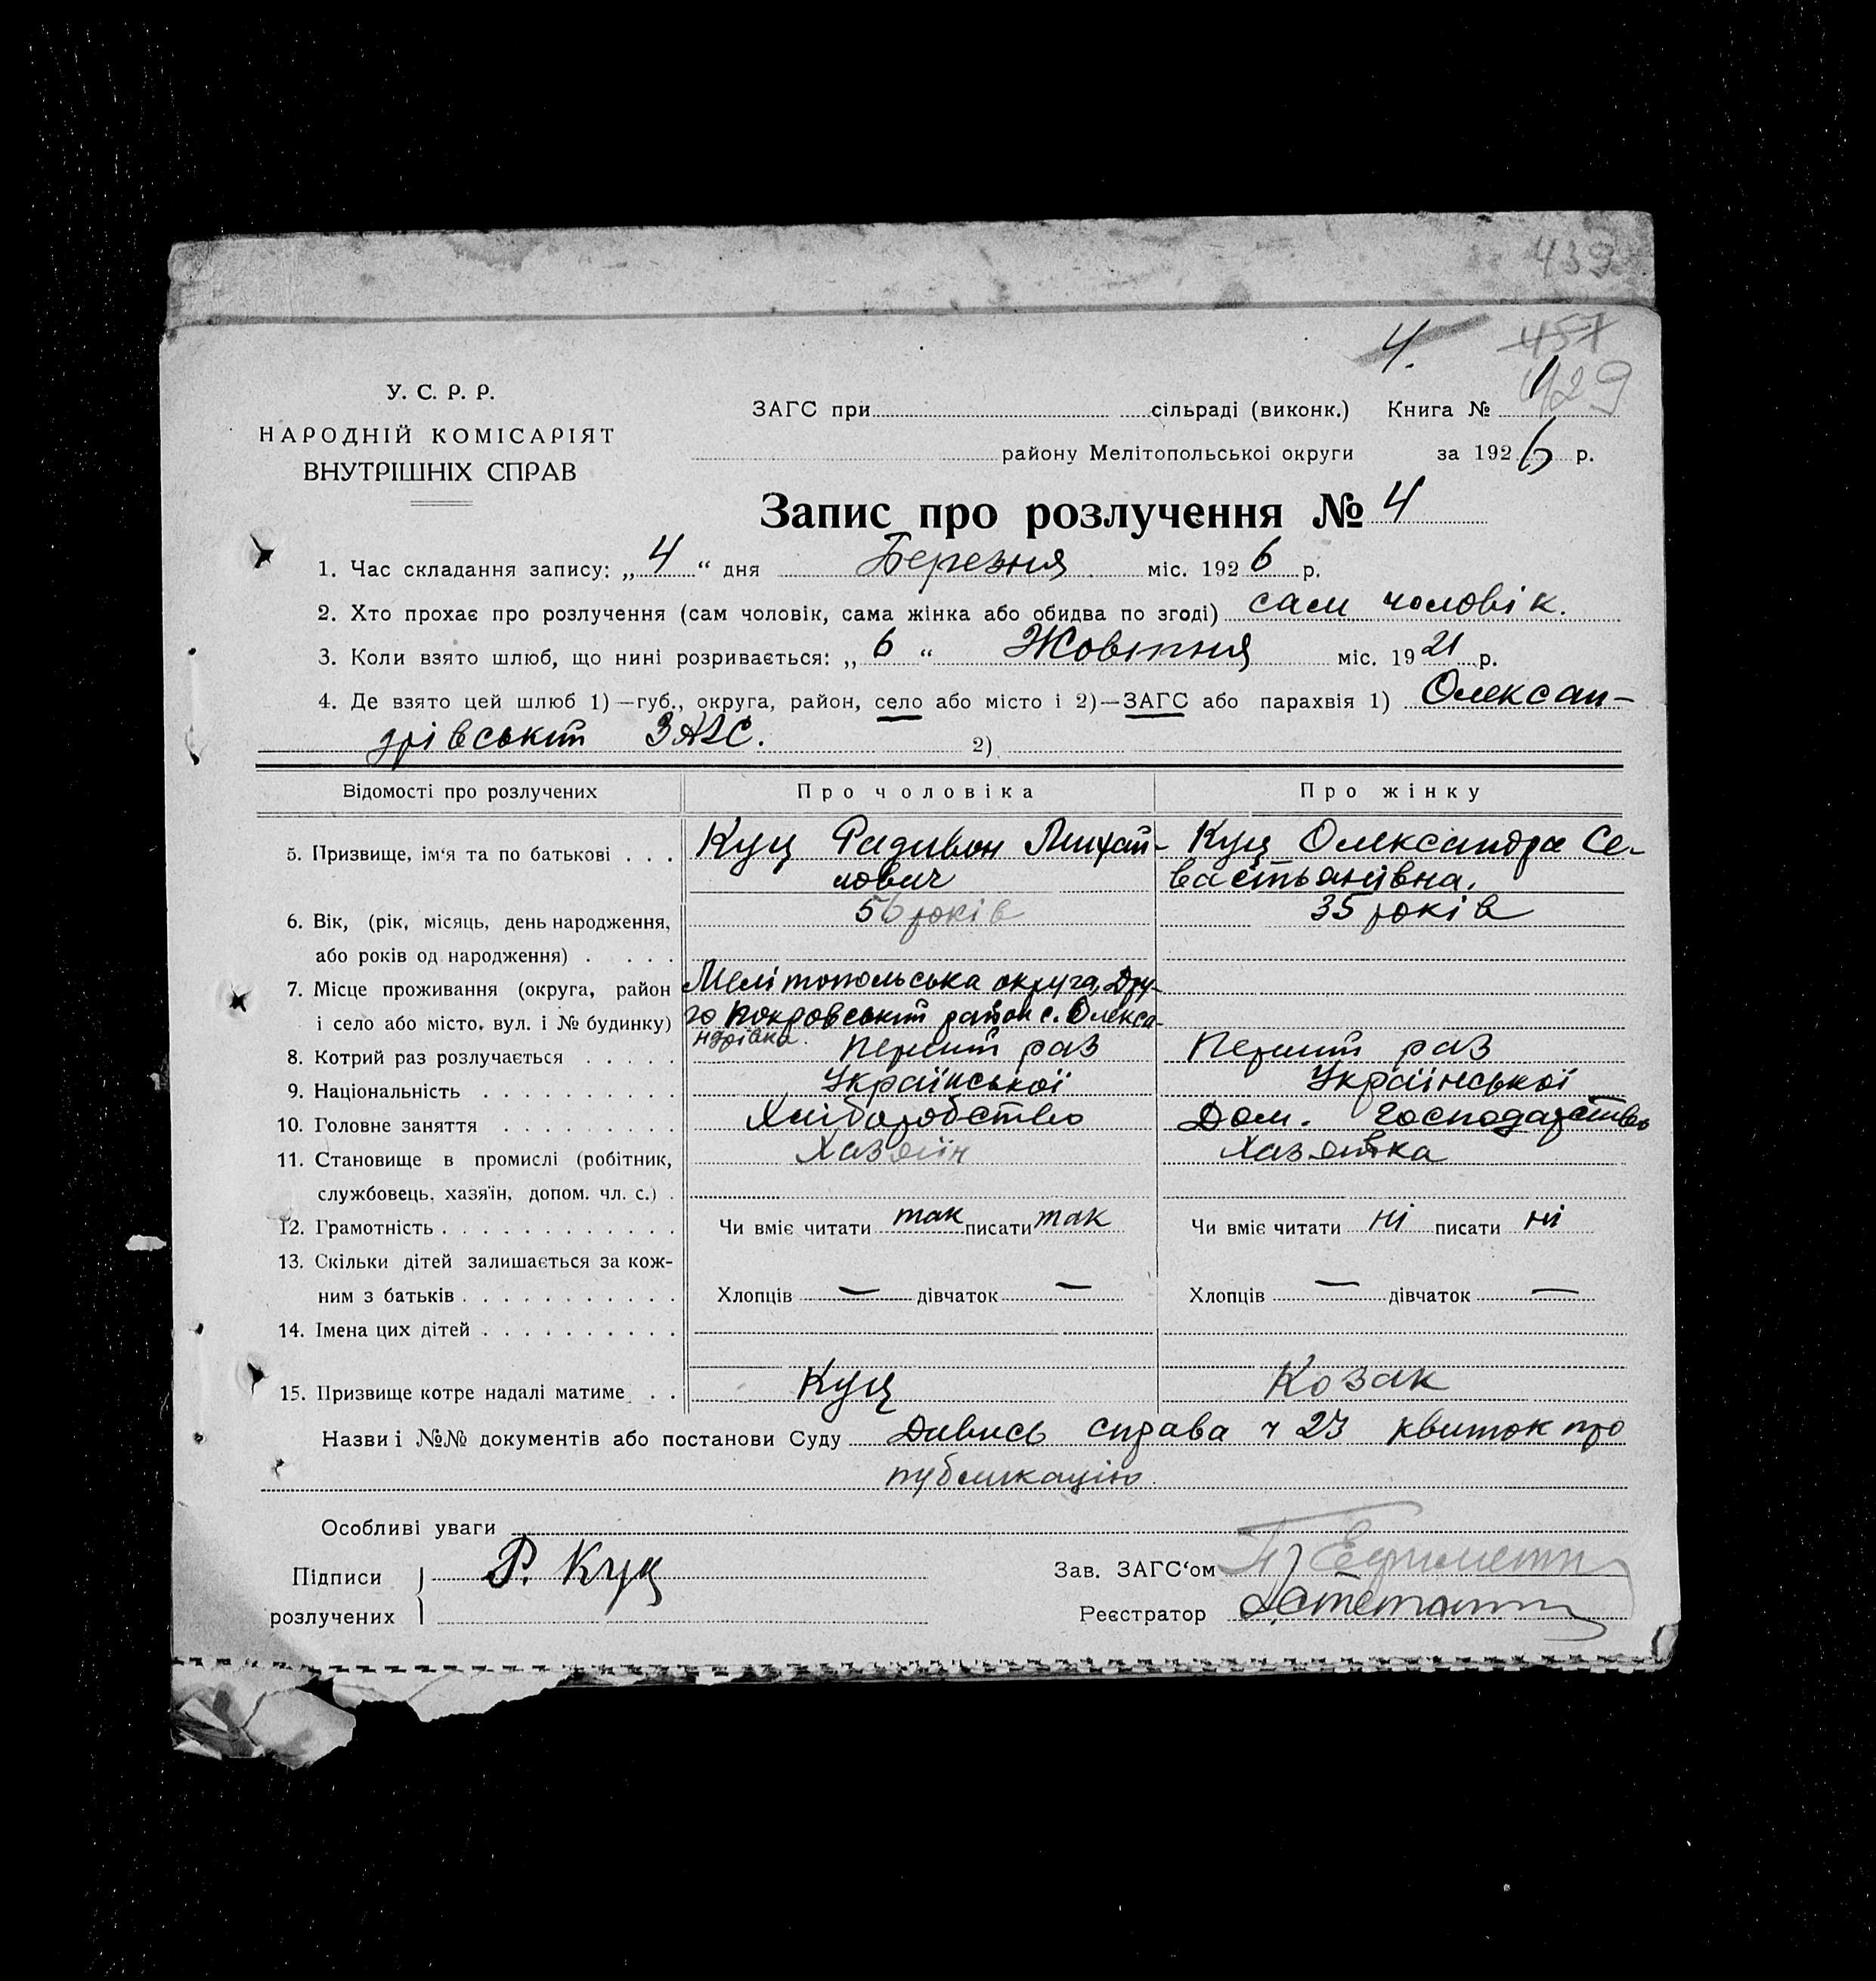 439
4. 457
429
У. С. Р. Р.
НАРОДНІЙ КОМІСАРІЯТ
ВНУТРІШНІХ СПРАВ
ЗАГС при сільраді (виконк.) Книга № 1
району Мелітопольської округи за 1926 р.
Запис про розлучення № 4
1. Час складання запису: „4“ дня Березня міс. 1926 р.
2. Хто прохає про розлучення (сам чоловік, сама жінка або обидва по згоді) сам чоловік.
3. Коли взято шлюб, що нині розривається: „6“ Жовтня міс. 1921 р.
4. Де взято цей шлюб 1)—губ., округа, район, село або місто і 2)—ЗАГС або парахвія 1) Олексан-
дрівський ЗАГС. 2)
Відомості про розлучених Про чоловіка Про жінку
5. Призвище, ім'я та по батькові . . . Куц Радивон Михай- Куц Олександра Се-
лович вастьянівна.
6. Вік, (рік, місяць, день народження, 56 років 35 років
або років од народження) . . . .
7. Місце проживання (округа, район Мелітопольська округа, Дру-
і село або місто, вул. і № будинку) го Покровський район с. Олекса-
ндрівка.
8. Котрий раз розлучається . . . . . Перший раз Перший раз
9. Національність . . . . . . . . . . Української Української
10. Головне заняття . . . . . . . . . Хліборобство Дом. господарство
11. Становище в промислі (робітник, Хазяїн Хазяйка
службовець, хазяїн, допом. чл. с.) .
12. Грамотність . . . . . . . . . . . . Чи вміє читати так писати так Чи вміє читати ні писати ні
13. Скільки дітей залишається за кож-
ним з батьків . . . . . . . . . . . Хлопців — дівчаток — Хлопців — дівчаток —
14. Імена цих дітей . . . . . . . . . .
15. Призвище котре надалі матиме . . Куц Козак
Назви і №№ документів або постанови Суду Дивись справа ч 23 квиток про
публикацію.
Особливі уваги
Підписи Р. Куц Зав. ЗАГС'ом
розлучених Реєстратор